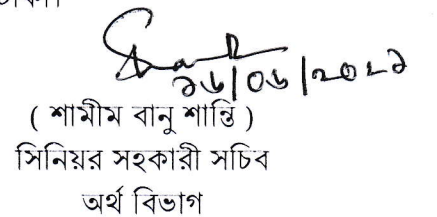 ১৬/০৬/২০২১
( শামীম বানু শান্তি )
সিনিয়র সহকারী সচিব
অর্থ বিভাগ